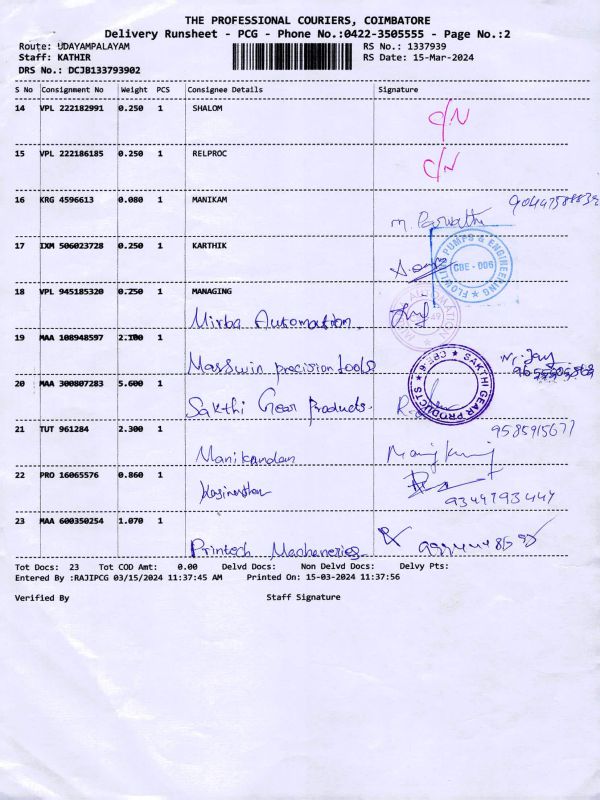 THE PROFESSIONAL COURIERS, COIMBATORE
Delivery Runsheet - PCG - Phone No.:0422-3505555 - Page No.:2
Route: UDAYAMPALAYAM RS No.: 1337939
Staff: KATHIR RS Date: 15-Mar-2024
DRS No.: DCJB133793902
S No Consignment No Weight PCS Consignee Details Signature
14 VPL 222182991 0.250 1 SHALOM
15 VPL 222186185 0.250 1 RELPROC
16 KRG 4596613 0.080 1 MANIKAM
M. Parvathi
17 IXM 506023728 0.250 1 KARTHIK
PUMPS & ENGINEERING
CBE - 006
18 VPL 945185320 0.250 1 MANAGING
Mirba Automation
19 MAA 108948597 2.100 1
Masswin precision tools
20 MAA 300807283 5.600 1
Sakthi Gear Products.
SAKTHI GEAR PRODUCTS
CBE-6
21 TUT 961284 2.300 1
9585915677
Manikandan
22 PRO 16065576 0.860 1
9349793447
23 MAA 600350254 1.070 1
Printech
Tot Docs: 23 Tot COD Amt: 0.00 Delvd Docs: Non Delvd Docs: Delvy Pts:
Entered By :RAJIPCG 03/15/2024 11:37:45 AM Printed On: 15-03-2024 11:37:56
Verified By Staff Signature